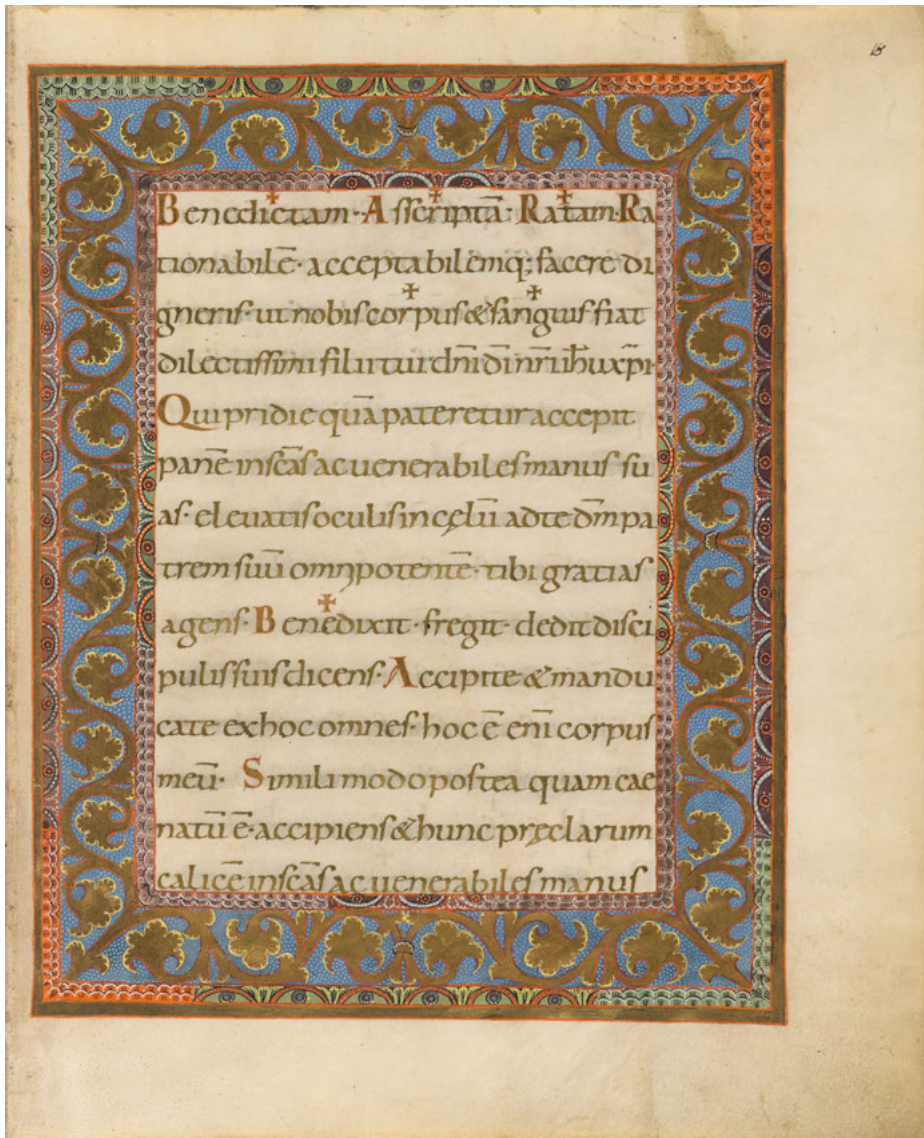 Benedictam· Asscriptā· Ratam· Ra
tionabilē· acceptabilemq; facere di
gneris· ut nobis corpus & sanguis fiat
dilectissimi filii tui dn̄i dī nr̄i ih̄u xp̄i
Qui pridie quā pateretur accepit
panē in sc̄as ac uenerabiles manus su
as· eleuatis oculis in cęlū ad te dm̄ pa
trem suū omnipotentē· tibi gratias
agens· Benedixit· fregit· dedit disci
pulis suis dicens· Accipite & mandu
cate ex hoc omnes· hoc ē eni̅ corpus
meū· Simili modo postea quam cae
natū ē· accipiens & hunc pręclarum
calicē in sc̄as ac uenerabiles manus